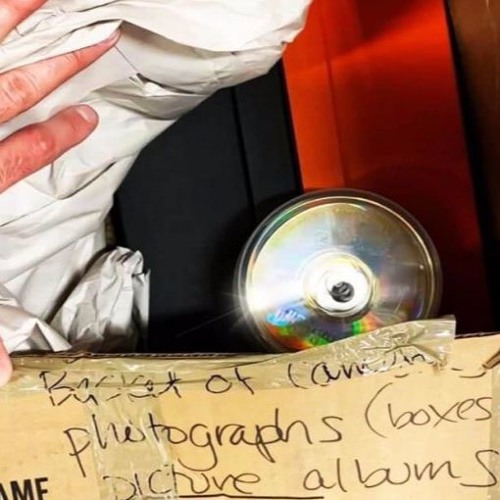 Basket of Can
photographs (boxes
picture albums
AME